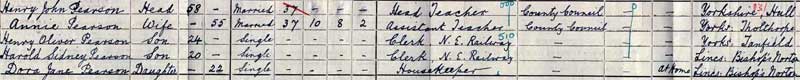 Henry John Pearson Head 58 - Married 37 Head Teacher 500 County Council - 0 Yorkshire, Hull
Annie Pearson Wife - 55 Married 37 10 8 2 Assistant Teacher County Council - Yorks. Tholthorpe
Henry Oliver Pearson Son 24 - Single - - - - Clerk N. E. Railway 510 - Yorks. Tanfield
Harold Sidney Pearson Son 20 - Single - - - - Clerk N. E. Railway - Lincs. Bishop's Norton
Dora Jane Pearson Daughter - 22 Single - - - - Housekeeper - at Home Lincs. Bishop's Norton